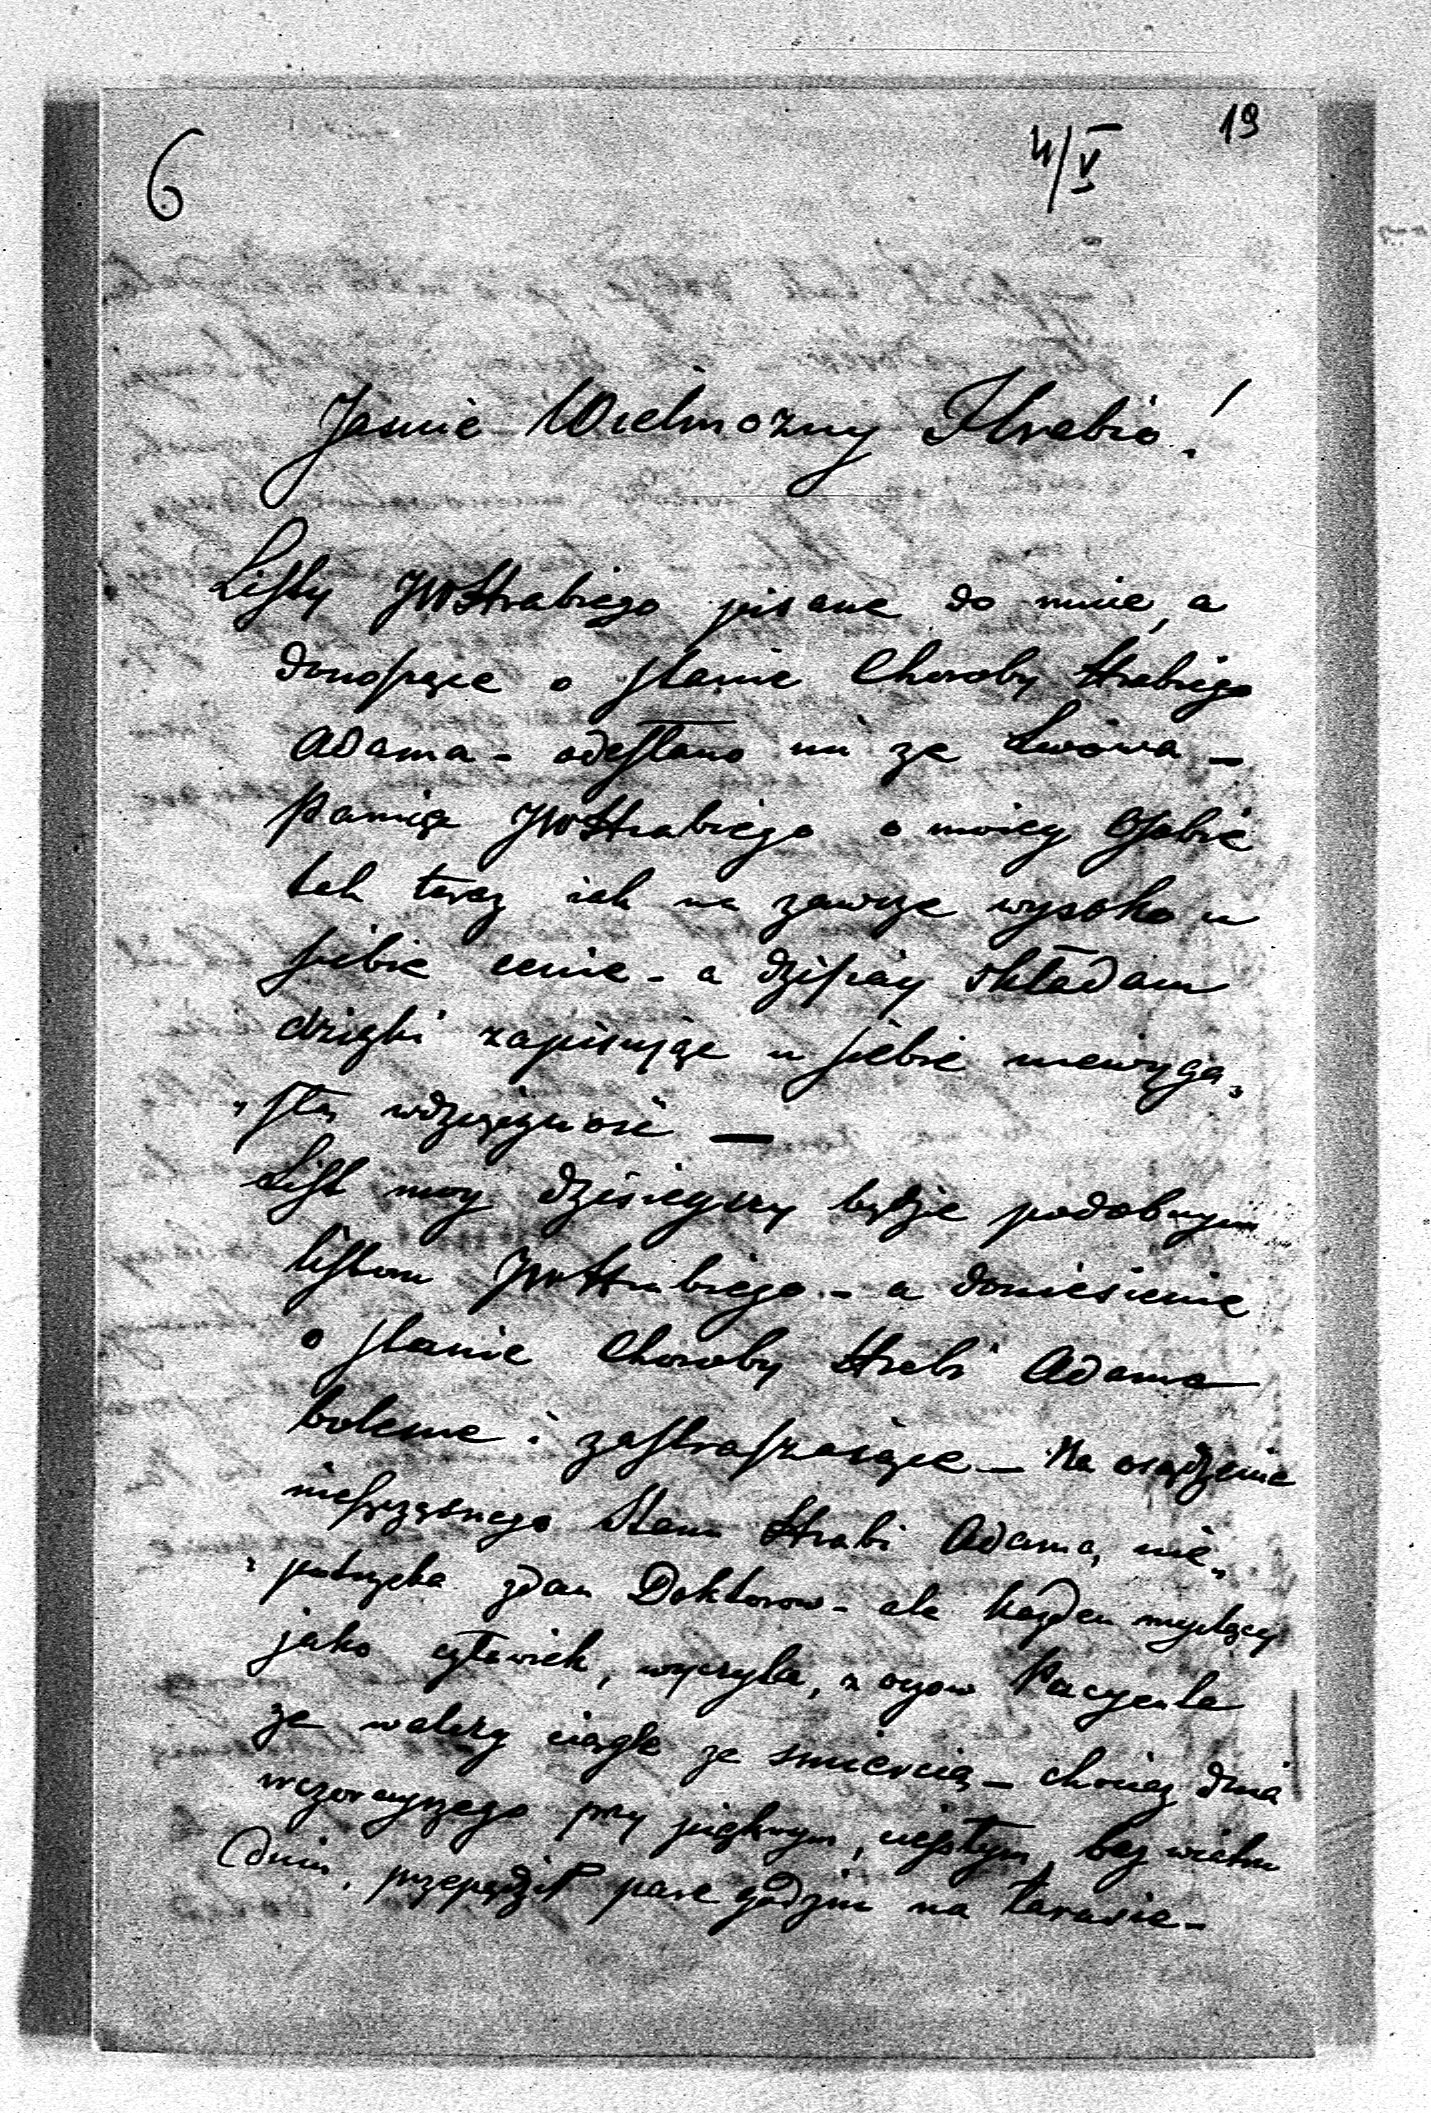 6
4/V
19
Jasnie Wielmozny Hrabio!
Listy JWHrabiego pisane do mnie, a
donoszące o stanie Choroby Hrabiego
Adama - odesłano mi ze Lwowa -
Pamięć JWHrabiego o moiey Osobie
tak teraz iak na zawsze wysoko u
siebie cenie - a dzisiay składam
dzięki zapisując u siebie niewyga„
„słą wdzięczność —
List moy dzisieyszy będzie podobnym
listom JWHrabiego - a doniesienie
o stanie Choroby Hrabi Adama
bolesne i zastraszaiące - Na osądzenie
nieszczęsnego Stanu Hrabi Adama, nie„
„potrzeba zdań Doktorow - ale każden myślący
jako człowiek, wyczyta, z oczow Pacyenta
że walczy ciągle ze smiercią - chociaż dnia
wczorayszego przy pięknym, ciepłym, bez wiatru
dniu, przepędził pare godzin na tarasie -